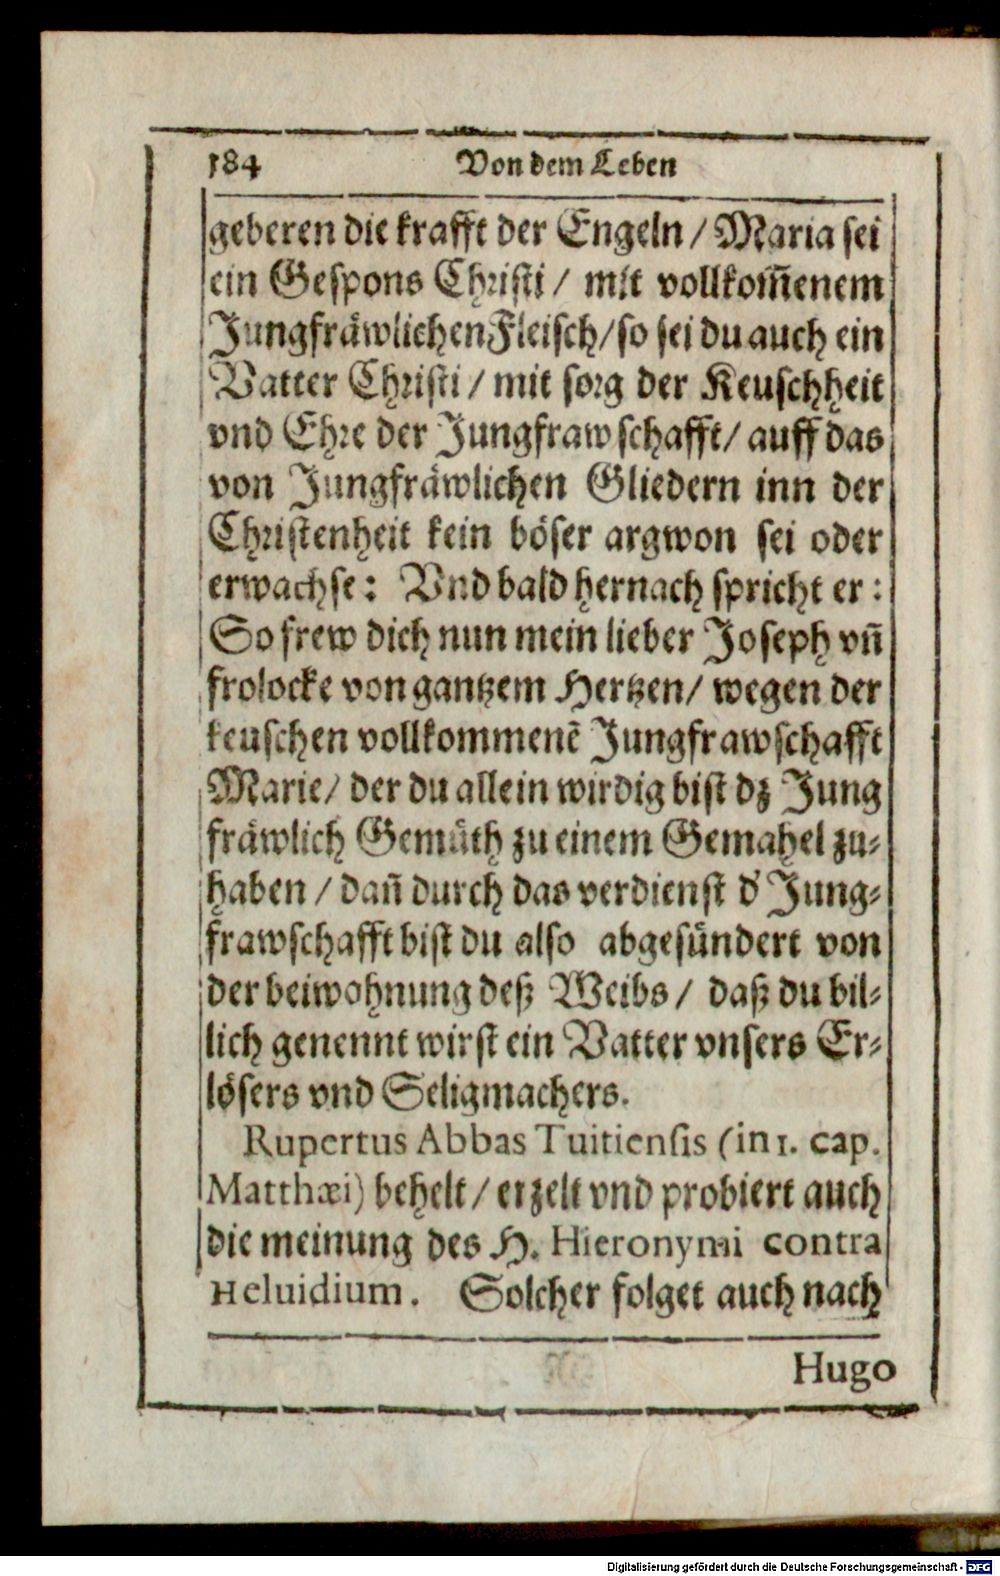 184 Von dem Leben
geberen die krafft der Engeln / Maria sei
ein Gespons Christi / mit vollkom̃enem
Jungfräwlichen Fleisch / so sei du auch ein
Vatter Christi / mit sorg der Keuschheit
vnd Ehre der Jungfrawschafft / auff das
von Jungfräwlichen Gliedern inn der
Christenheit kein böser argwon sei oder
erwachse: Vnd bald hernach spricht er:
So frew dich nun mein lieber Joseph vñ
frolocke von gantzem Hertzen / wegen der
keuschen vollkommenẽ Jungfrawschafft
Marie / der du allein wirdig bist dz Jung
fräwlich Gemüth zu einem Gemahel zu-
haben / dañ durch das verdienst d' Jung-
frawschafft bist du also abgesündert von
der beiwohnung deß Weibs / daß du bil-
lich genennt wirst ein Vatter vnsers Er-
lösers vnd Seligmachers.
Rupertus Abbas Tuitiensis (in 1. cap.
Matthæi) behelt / erzelt vnd probiert auch
die meinung des H. Hieronymi contra
Heluidium. Solcher folget auch nach
Hugo
Digitalisierung gefördert durch die Deutsche Forschungsgemeinschaft - DFG